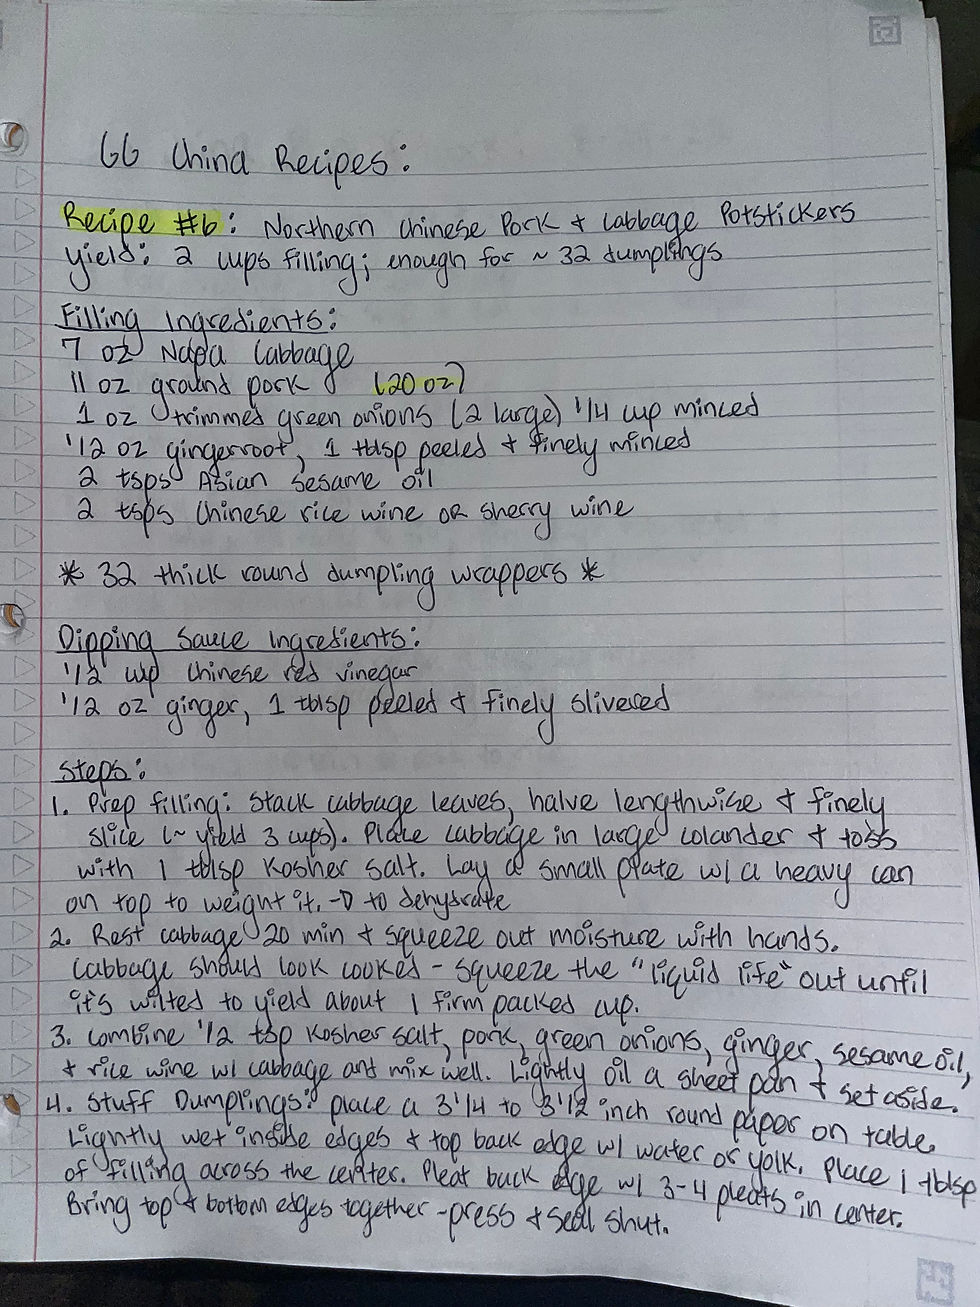 GG China Recipes:
Recipe #6: Northern Chinese Pork + Cabbage Potstickers
Yield: 2 cups filling; enough for ~ 32 dumplings
Filling Ingredients:
7 oz Napa Cabbage
11 oz ground pork (20 oz)
1 oz trimmed green onions (2 large) 1/4 cup minced
1/2 oz gingerroot, 1 tblsp peeled + finely minced
2 tsps Asian Sesame oil
2 tsps Chinese rice wine OR sherry wine
* 32 thick round dumpling wrappers *
Dipping Sauce Ingredients:
1/2 cup Chinese red vinegar
1/2 oz ginger, 1 tblsp peeled + finely slivered
Steps:
1. Prep filling: Stack cabbage leaves, halve lengthwise + finely
slice (~ yield 3 cups). Place cabbage in large colander + toss
with 1 tblsp Kosher salt. Lay a small plate w/ a heavy can
on top to weight it. → to dehydrate
2. Rest cabbage 20 min + squeeze out moisture with hands.
Cabbage should look cooked - squeeze the "liquid life" out until
it's wilted to yield about 1 firm packed cup.
3. Combine 1/2 tsp Kosher salt, pork, green onions, ginger, sesame oil,
+ rice wine w/ cabbage and mix well. Lightly oil a sheet pan + set aside.
4. Stuff Dumplings: place a 3 1/4 to 3 1/2 inch round paper on table.
Lightly wet inside edges + top back edge w/ water or yolk. Place 1 tblsp
of filling across the center. Pleat back edge w/ 3-4 pleats in center.
Bring top + bottom edges together - press + seal shut.